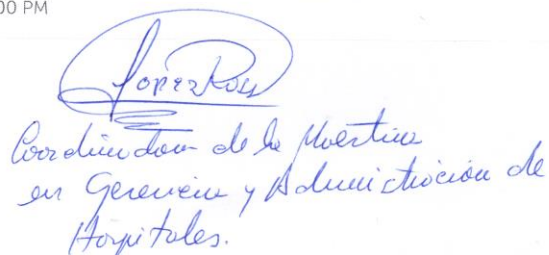 00 PM
López Ross
Coordinadora de la Maestría
en Gerencia y Administración de
Hospitales.